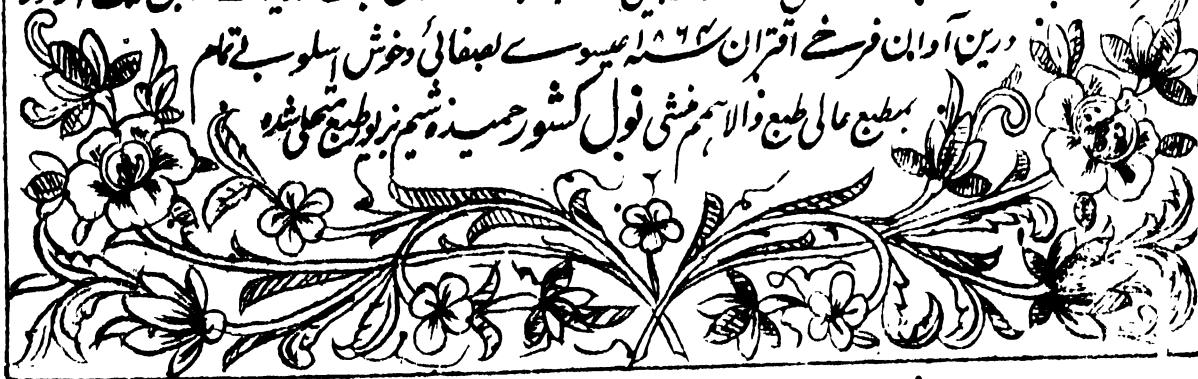 درین آوان فرخی اقتران سنه ۱۸۶۴ عیسوے بصفائی و خوش اسلوبے تمام
بمطبع عالی طبع والا همم منشی نول کشور حمیده شیم بزیور طبع متحلی شده